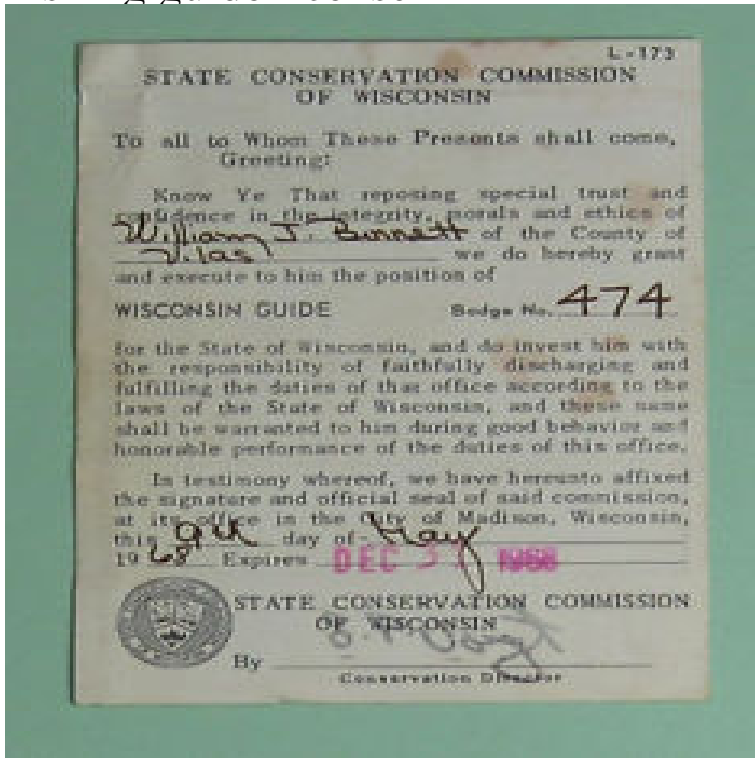 L-173
STATE CONSERVATION COMMISSION
OF WISCONSIN
To all to Whom These Presents shall come,
Greeting:
Know Ye That reposing special trust and
confidence in the integrity, morals and ethics of
William J. Burnett of the County of
Vilas we do hereby grant
and execute to him the position of
WISCONSIN GUIDE Badge No. 474
for the State of Wisconsin, and do invest him with
the responsibility of faithfully discharging and
fulfilling the duties of that office according to the
laws of the State of Wisconsin, and these same
shall be warranted to him during good behavior and
honorable performance of the duties of this office.
In testimony whereof, we have hereunto affixed
the signature and official seal of said commission,
at its office in the City of Madison, Wisconsin,
this 9th day of May
1968 Expires DEC 31 1968
STATE CONSERVATION COMMISSION
OF WISCONSIN
By
Conservation Director